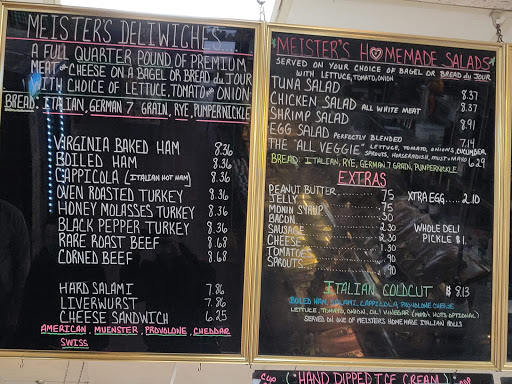 MEISTER'S DELIWICHES...
A FULL QUARTER POUND OF PREMIUM
MEAT or CHEESE ON A BAGEL OR BREAD du JOUR
WITH CHOICE OF LETTUCE, TOMATO or ONION
BREAD: ITALIAN, GERMAN 7 GRAIN, RYE, PUMPERNICKLE
VIRGINIA BAKED HAM 8.36
BOILED HAM 8.36
CAPPICOLA (ITALIAN HOT HAM) 8.36
OVEN ROASTED TURKEY 8.36
HONEY MOLASSES TURKEY 8.36
BLACK PEPPER TURKEY 8.36
RARE ROAST BEEF 8.68
CORNED BEEF 8.68
HARD SALAMI 7.86
LIVERWURST 7.86
CHEESE SANDWICH 6.25
AMERICAN, MUENSTER, PROVOLONE, CHEDDAR
SWISS
MEISTER'S HOMEMADE SALADS
SERVED ON YOUR CHOICE OF BAGEL OR BREAD du JOUR
WITH LETTUCE, TOMATO, ONION
TUNA SALAD 8.37
CHICKEN SALAD ALL WHITE MEAT 8.37
SHRIMP SALAD 8.91
EGG SALAD PERFECTLY BLENDED 7.14
THE "ALL VEGGIE" LETTUCE, TOMATO, ONIONS, CUCUMBER
SPROUTS, HORSERADISH, MUST. MAYO 6.29
BREAD: ITALIAN, RYE, GERMAN 7 GRAIN, PUMPERNICKLE
EXTRAS
PEANUT BUTTER .75
JELLY .75
MONIN SYRUP .50
BACON 2.30
SAUSAGE 2.30
CHEESE 1.30
TOMATOES .90
SPROUTS .90
XTRA EGG 2.10
WHOLE DELI
PICKLE $1.
ITALIAN COLDCUT $ 9.13
BOILED HAM, SALAMI, CAPPICOLA, PROVOLONE CHEESE
LETTUCE, TOMATO, ONION, OIL/VINEGAR (MAYO/HOTS OPTIONAL)
SERVED ON ONE OF MEISTER'S HOMEMADE ITALIAN ROLLS
("HAND DIPPED ICE CREAM")